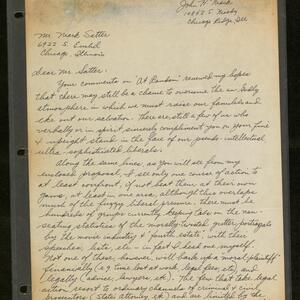 John H. Mack
10842 S.
Chicago Ridge, Ill
Mr. Mark Satter
6922 S. Euclid
Chicago, Illinois
Dear Mr. Satter:
Your comments on "At Random" renewed my hopes
that there may still be a chance to overcome the un-Godly
atmosphere in which we must raise our families and
eke out our salvation. There are still a few of us who
verbally or in spirit sincerely compliment you on your fine
& upright stand in the face of our pseudo-intellectual
ultra-sophisticated liberals.
Along the same lines, as you will see from my
enclosed proposal, I see only one course of action to
at least confront, if not beat them at their own
game, at least in one area, although this overlaps
much of the fuzzy liberal pressure. There must be
hundreds of groups currently keeping tabs on the
statistics of the morally-wanted gutter
by the movie industry & "fourth estate", with their
speeches, lists, etc - in fact I head one myself.
Not one of these, however, will back up a moral plaintiff
financially (e.g. time lost @ work, legal fees, etc) and
legally (advice, lawyers, etc). The few that take legal
action resort to ordinary channels of criminal & civil
prosecutors (State Attorney etc) and are limited by the